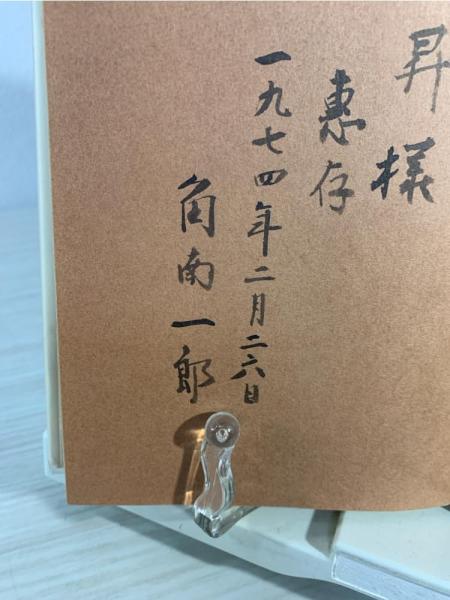 昇様
惠存
一九七四年二月二六日
角南一郎